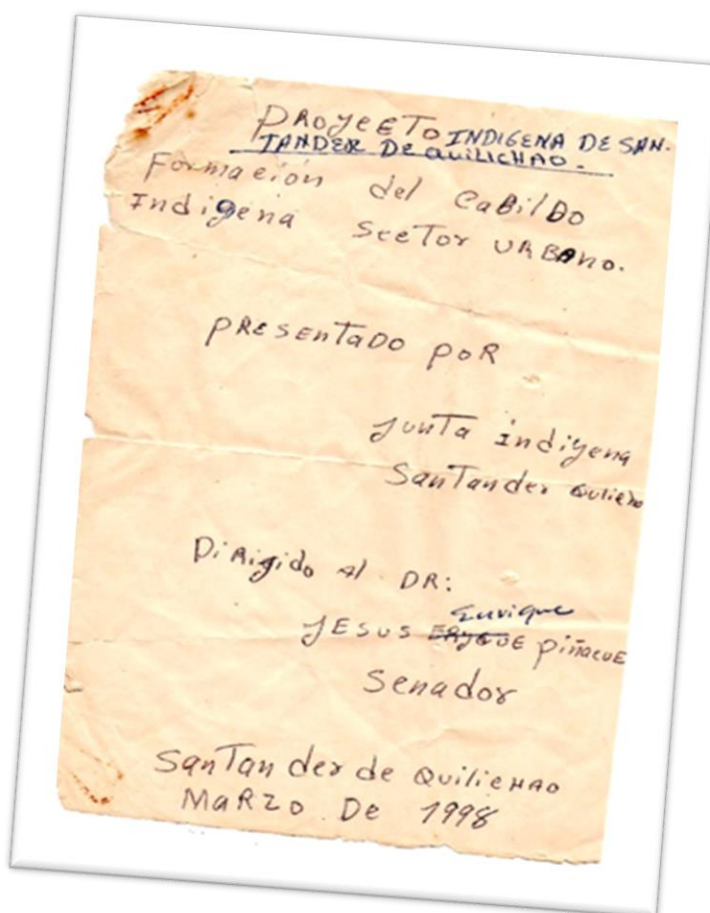 PROYECTO INDIGENA DE SAN-
TANDER DE QUILICHAO.
Formacion del CaBilDo
Indigena SecTor URBANO.
PRESEnTaDO POR
JunTa indigena
SanTander Quilicho
DiRigido Al DR:
Enrique
JESUS ERYQUE PiñacuE
Senador
SanTander de QuilicHAO
MaRZo De 1998